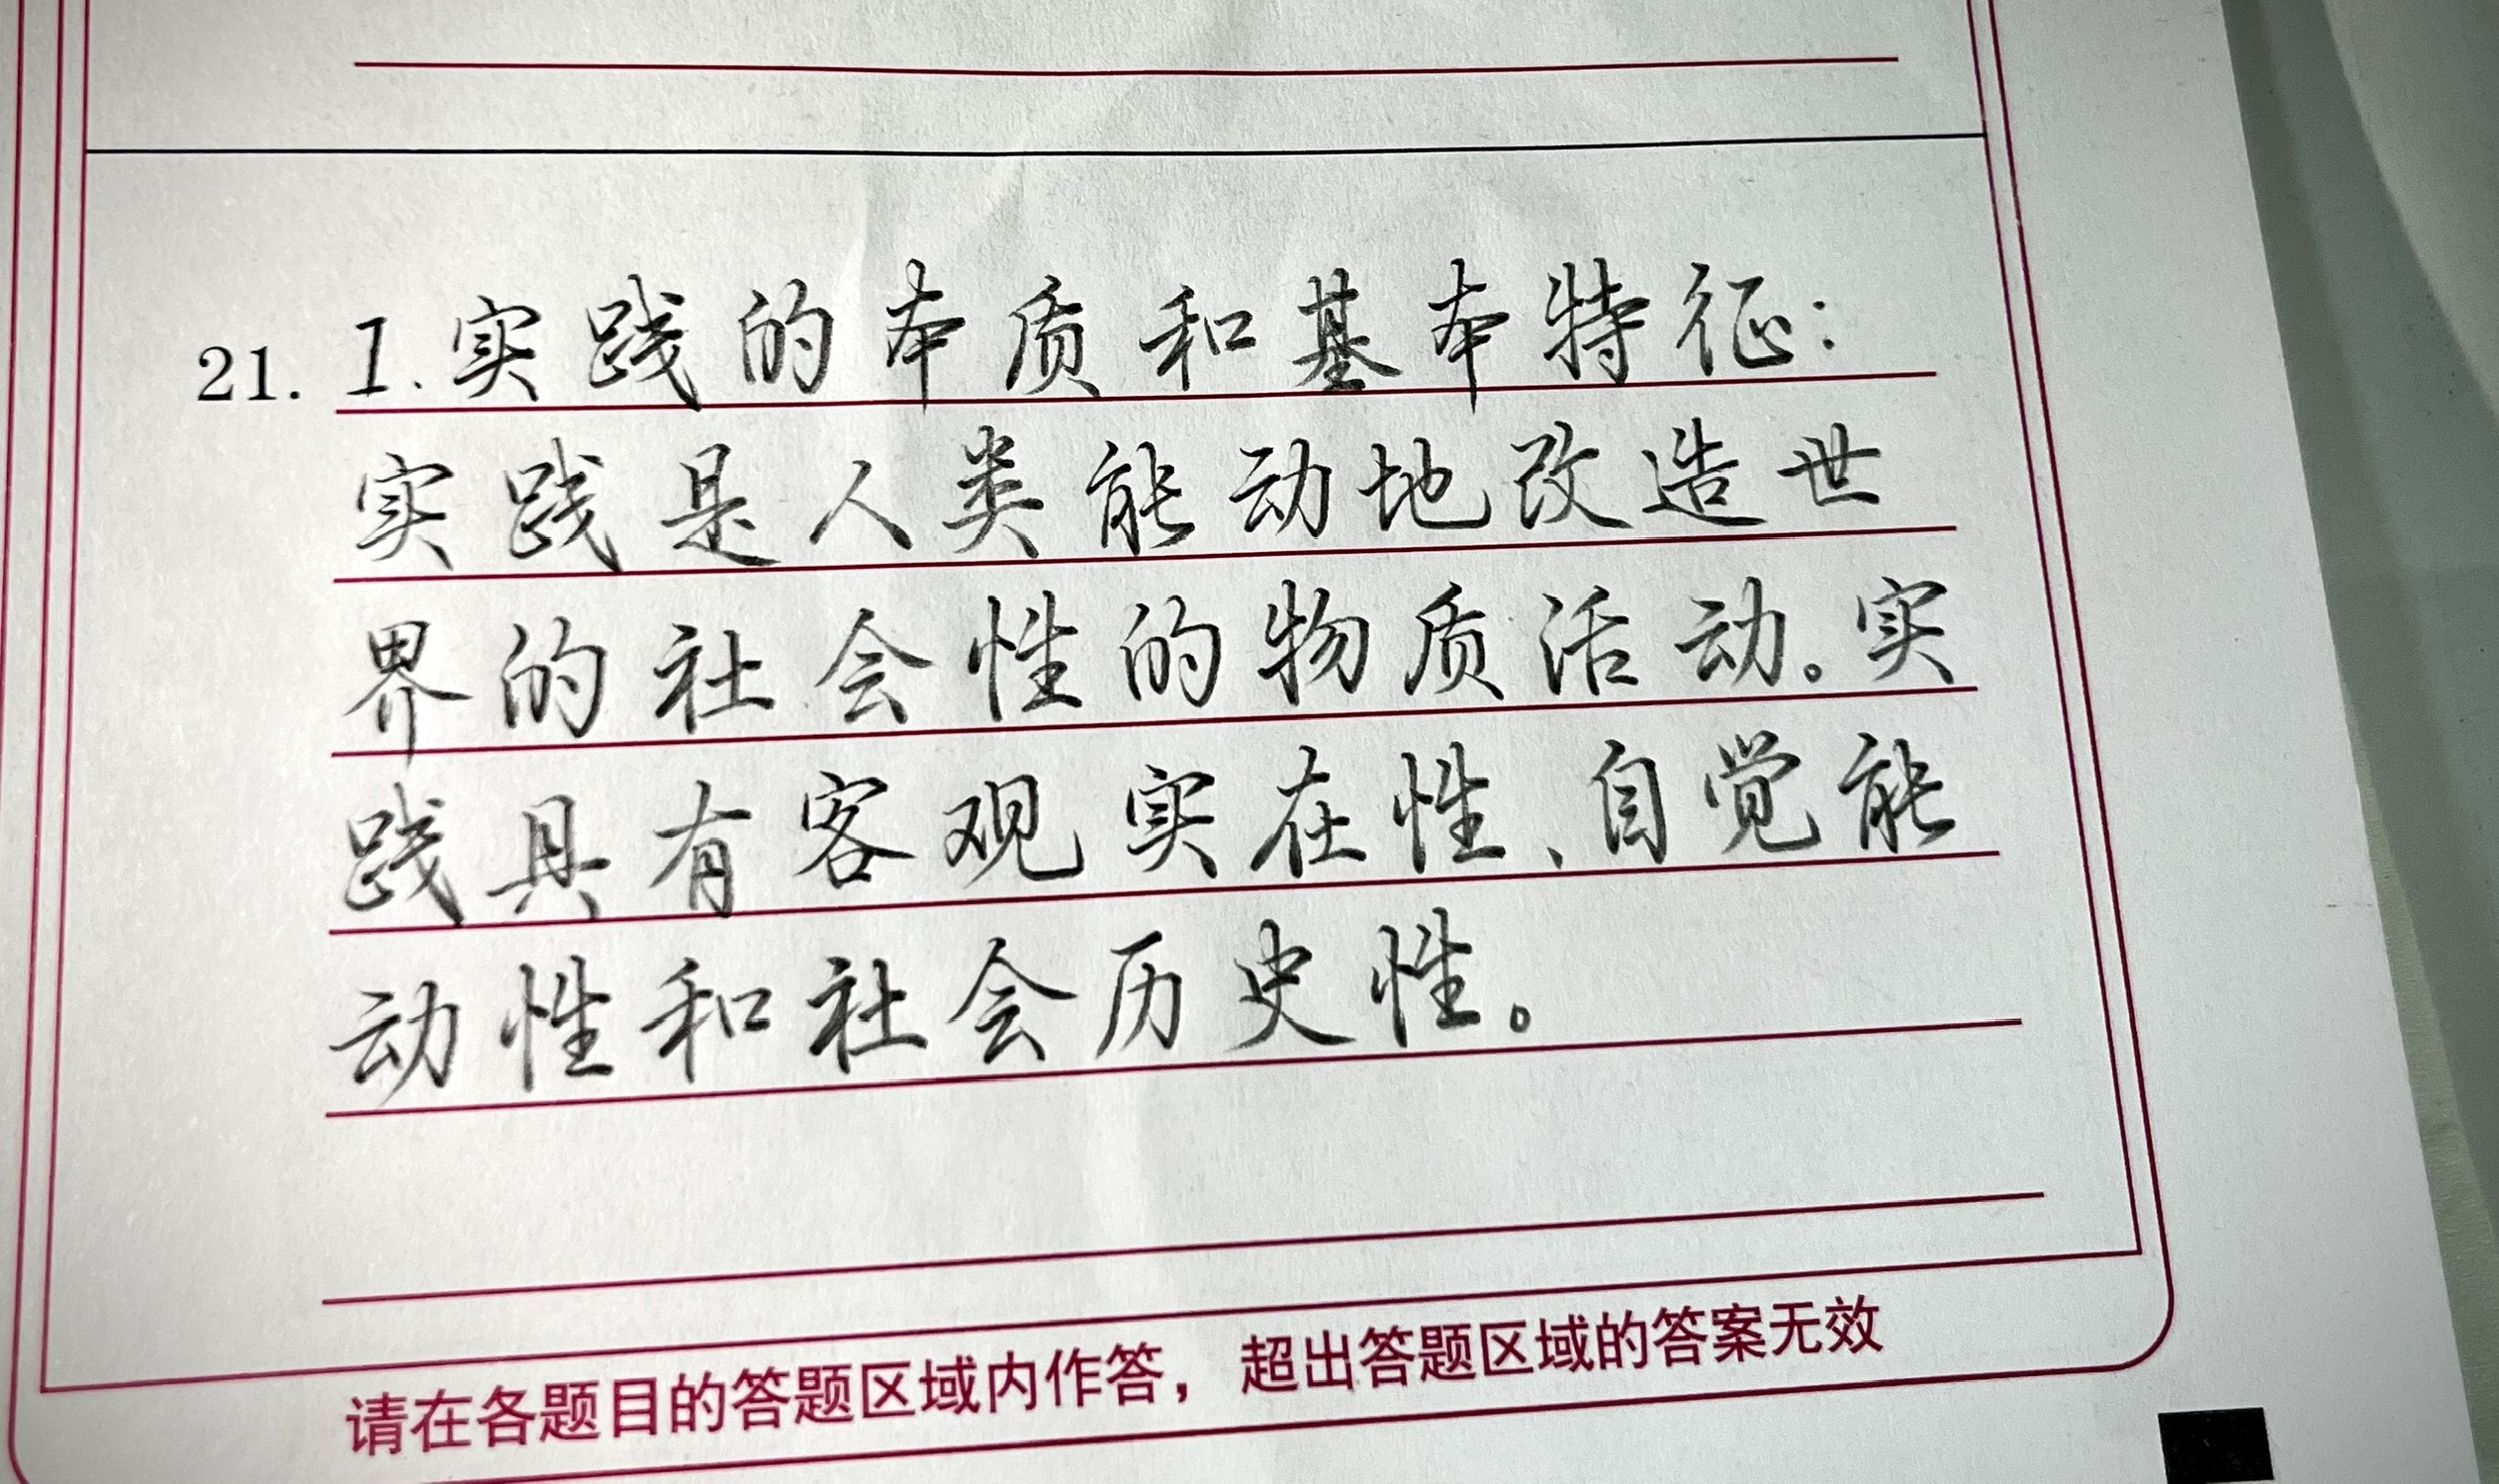 21. 1.实践的本质和基本特征：
实践是人类能动地改造世
界的社会性的物质活动。实
践具有客观实在性、自觉能
动性和社会历史性。
请在各题目的答题区域内作答，超出答题区域的答案无效